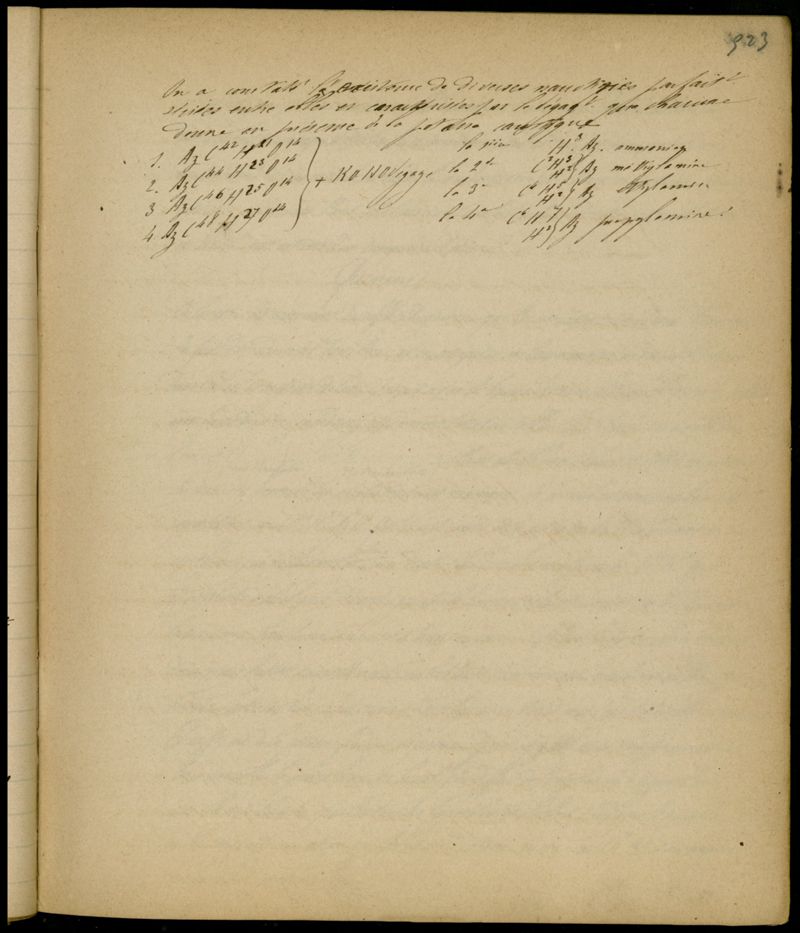 923
On a constaté l'existence de diverses narcotines parfait^t
définies entre elles et caractérisées par le dégag^t que chacune
donne en présence de la potasse caustique
1. Az C^42 H^21 O^14
2. Az C^44 H^23 O^14
3 Az C^46 H^25 O^14
4. Az C^48 H^27 O^14
+ KO HO dégage
la 1ère H^3. Az. ammoniaq
la 2^de C^2H^3 H^2 } Az méthylamine
la 3^e C^4 H^5 H^2 } Az éthylamine
la 4^e C^6 H^7 H^2 } Az propylamine.